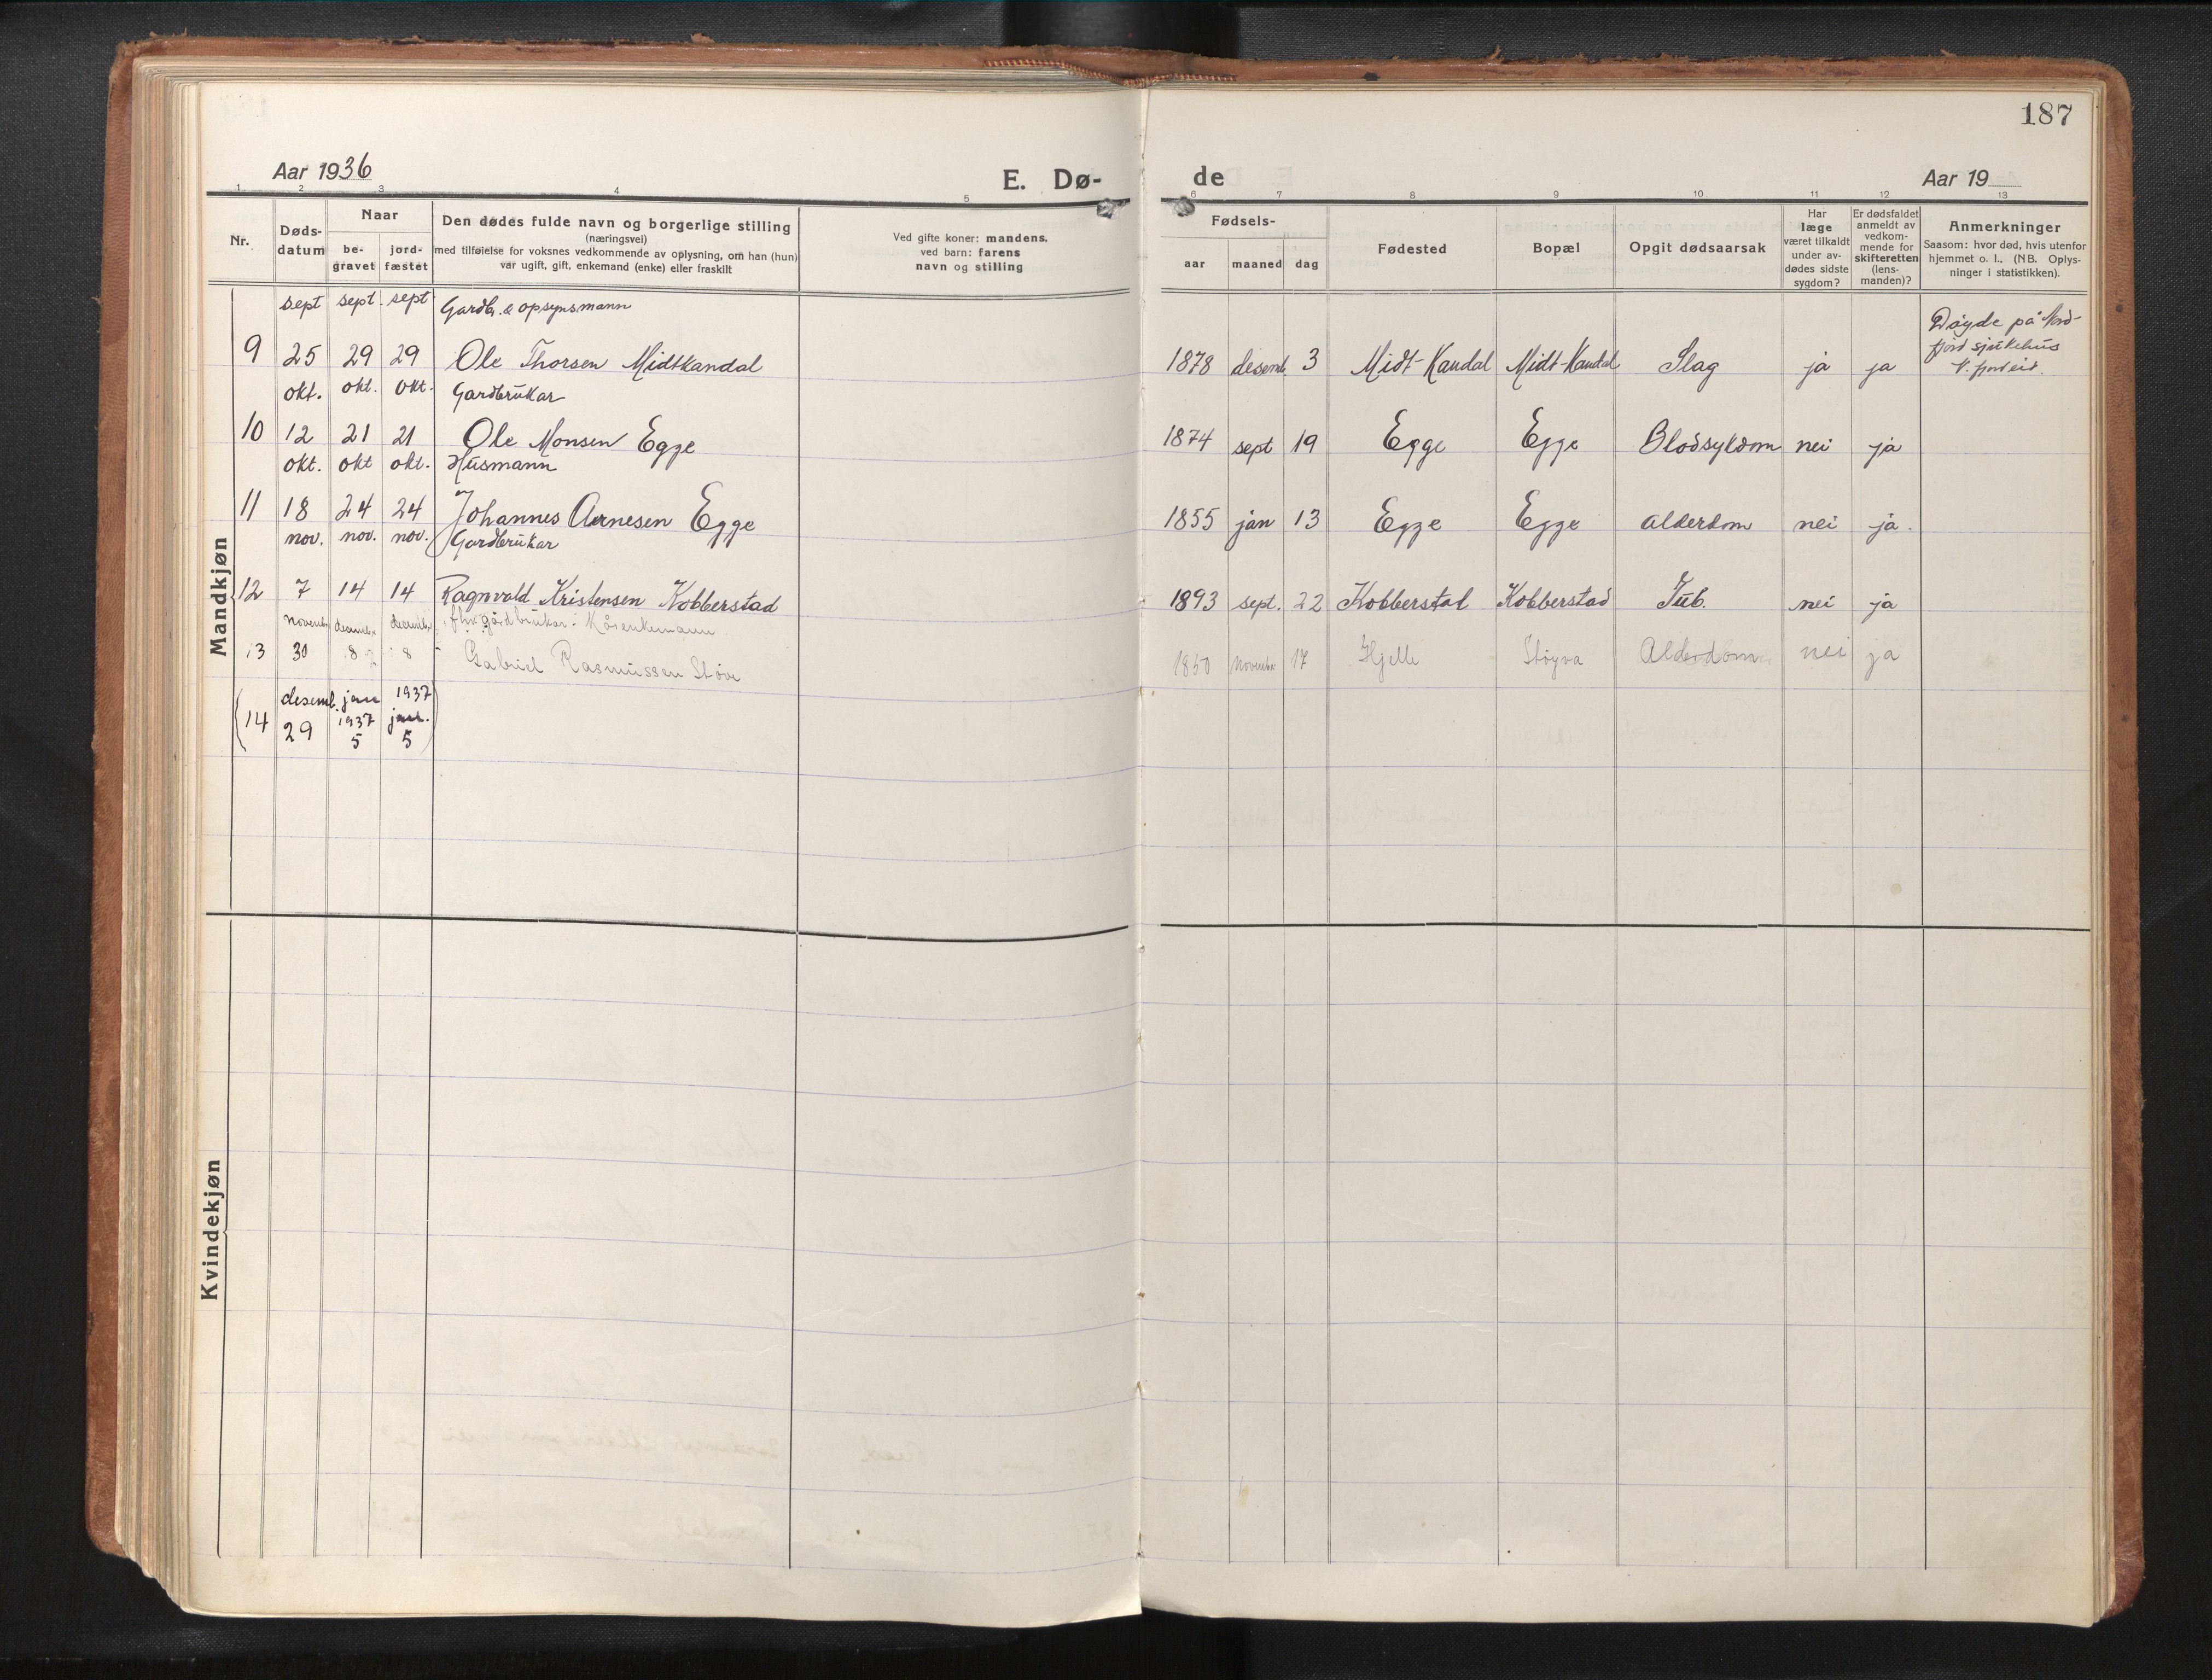 187
Aar 1936
E. Dø-
de
Aar 19
1 2 3 4 5 6 7 8 9 10 11 12 13
Nr.
Døds-
datum
Naar
be-
gravet
jord-
fæstet
Den dødes fulde navn og borgerlige stilling
(næringsvei)
med tilføielse for voksnes vedkommende av oplysning, om han (hun)
var ugift, gift, enkemand (enke) eller fraskilt
Ved gifte koner: mandens.
ved barn: farens
navn og stilling
Fødsels-
aar
maaned
dag
Fødested
Bopæl
Opgit dødsaarsak
Har
læge
været tilkaldt
under av-
dødes sidste
sygdom?
Er dødsfaldet
anmeldt av
vedkom-
mende for
skifteretten
(lens-
manden)?
Anmerkninger
Saasom: hvor død, hvis utenfor
hjemmet o. l., (NB. Oplys-
ninger i statistikken).
Mandkjøn
sept sept. sept Gardbr. & opsynsmann
9 25 29 29 Ole Thorsen Midtkandal 1878 desemb. 3 Midt-Kandal Midt-Kandal Slag ja ja
Døyde på Nord-
fjord sjukehus
okt. okt. okt. Gardbrukar
10 12 21 21 Ole Monsen Egge 1874 sept 19 Egge Egge Blodsykdom nei ja
okt. okt okt. Husmann
11 18 24 24 Johannes Arnesen Egge 1855 jan 13 Egge Egge alderdom nei ja.
nov. nov. nov. Gardbrukar
12 7 14 14 Ragnvald Kristensen Kobberstad 1893 sept. 22 Kobberstad Kobberstad Tub. nei ja
novemb. decemb. decemb. gårdbrukar. Kårenkemann
13 30 8 8 Gabriel Rasmussen Støve 1850 november 17 Hjelle Støyva Alderdom nei ja
desemb. jan 1937
(14 29 1937 jan.
5 5)
Kvindekjøn